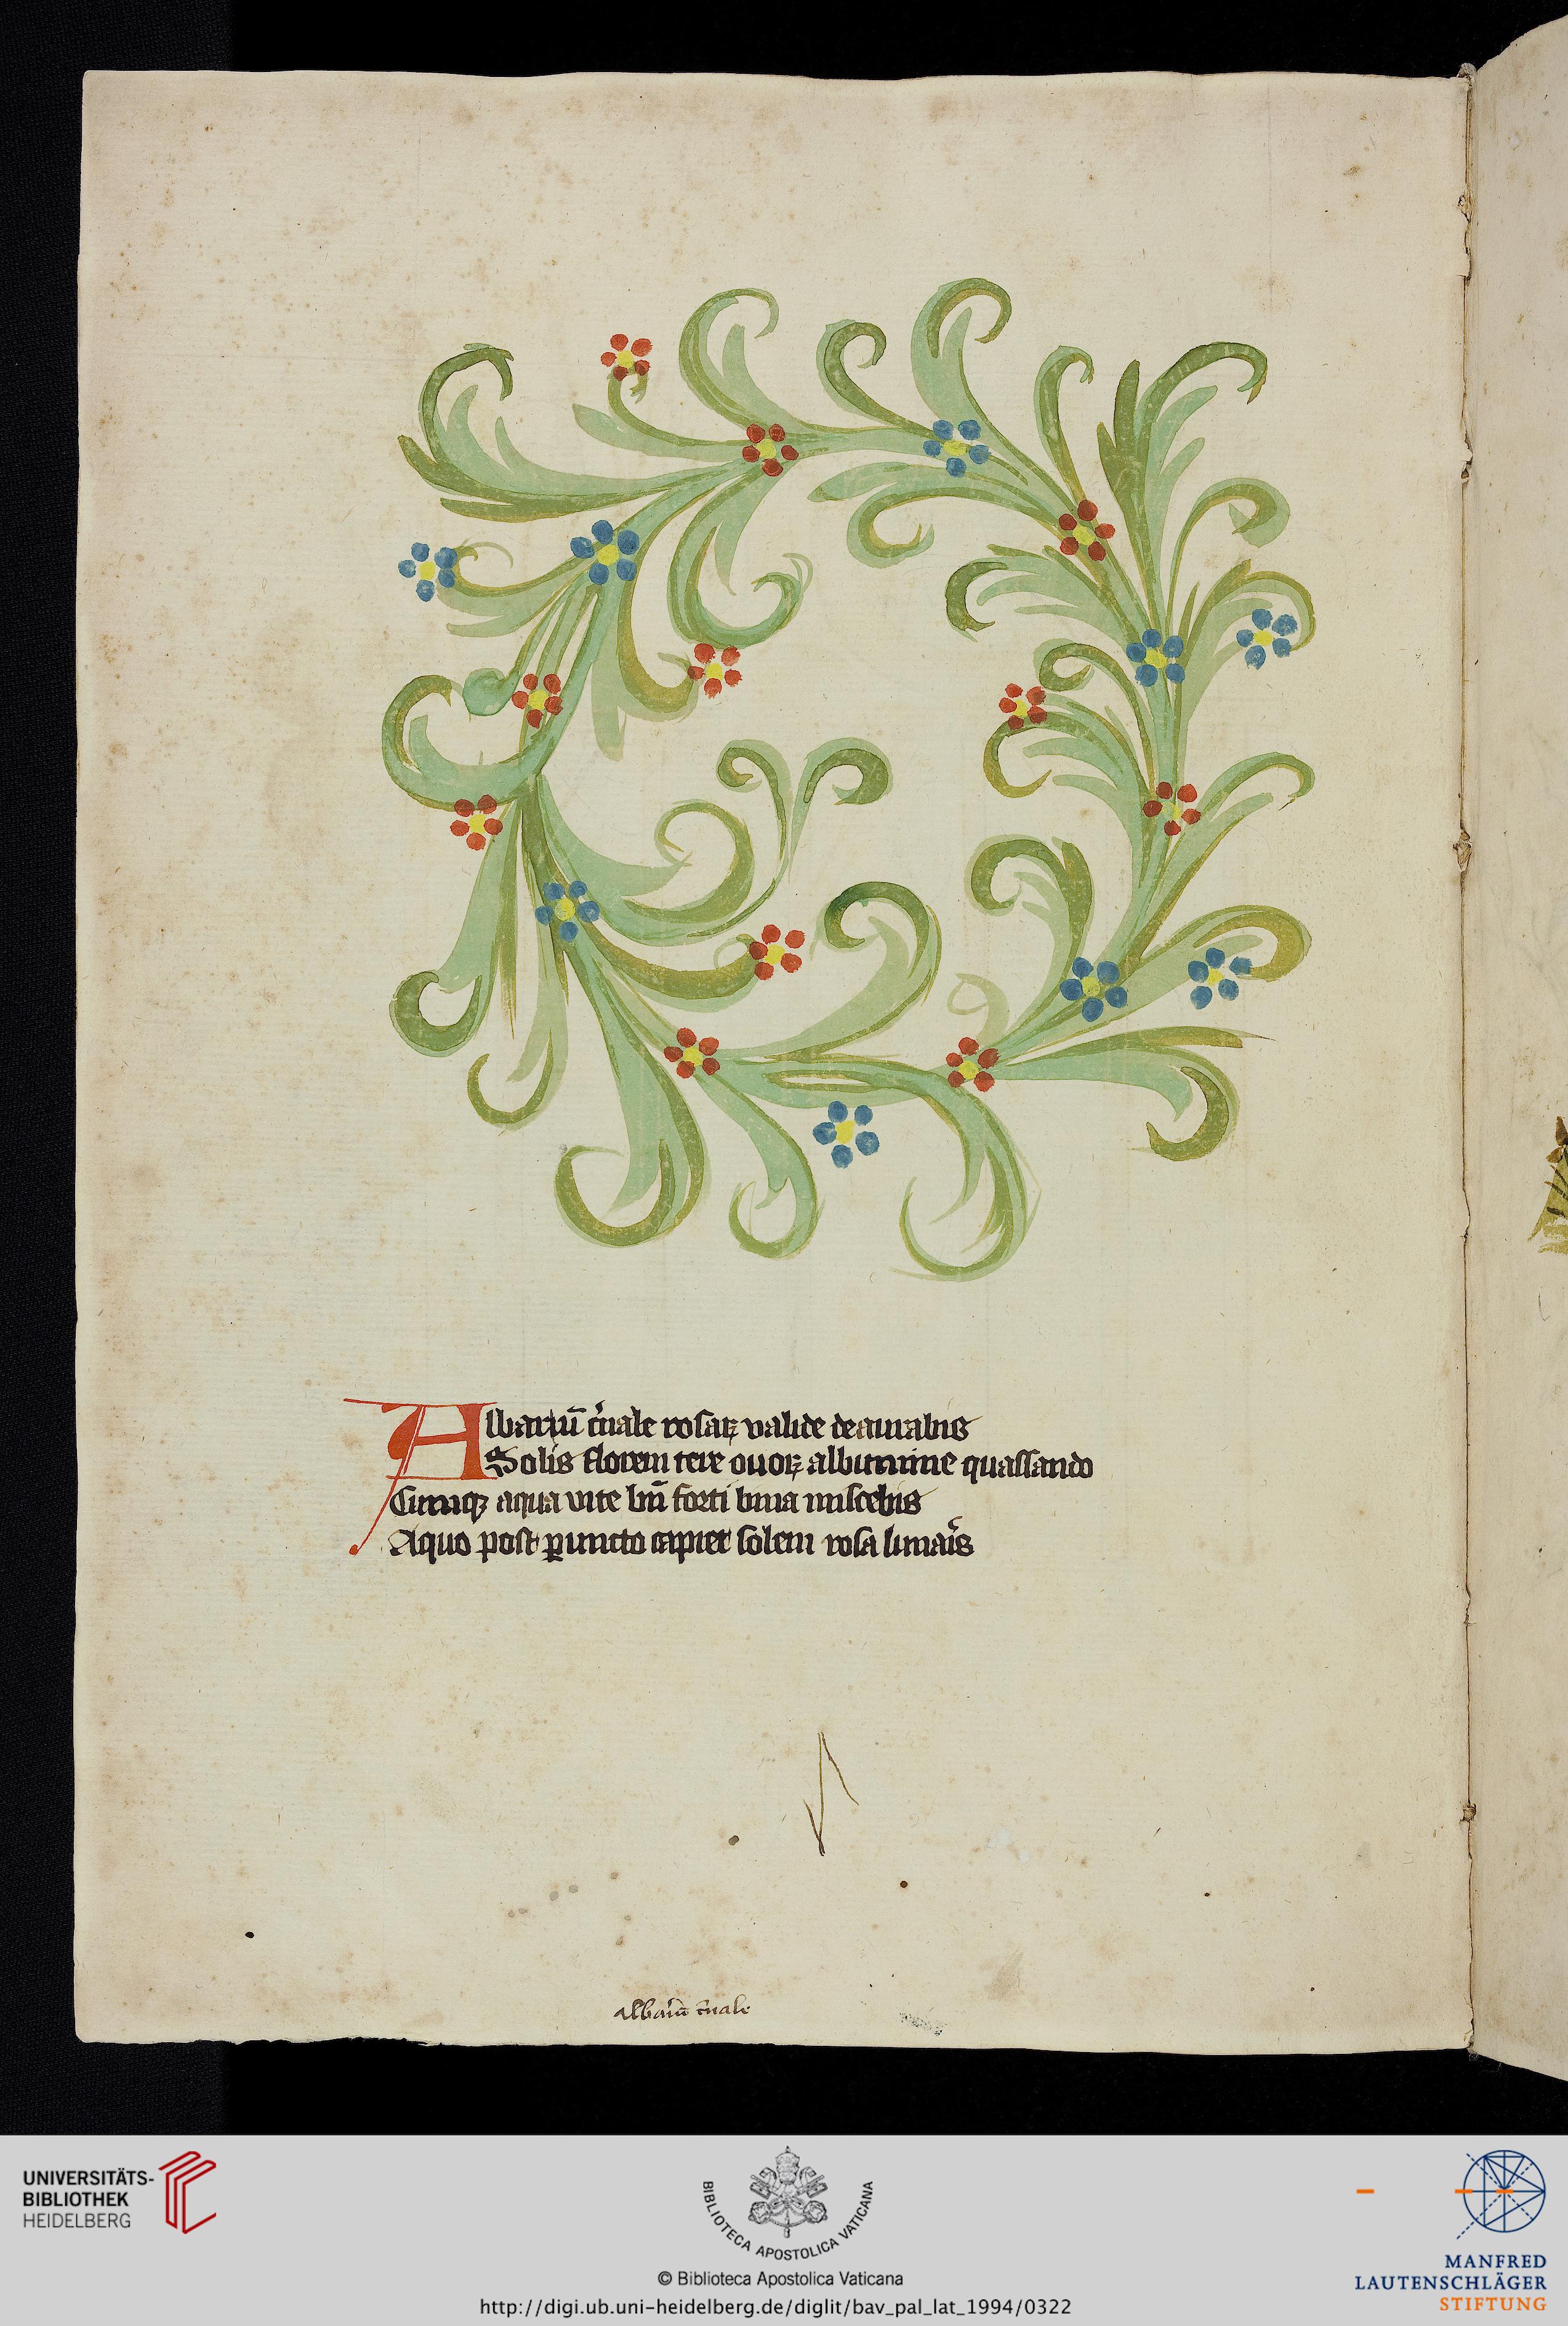 Albariũ c̃nale rosaꝝ valide deaurabis
Solis florem tere ouoꝝ albumine quassando
Cumqꝫ aqua vite bñ forti bina miscebis
Aquo post ꝑuncto capiet solem rosa lunaris
albariũ c̃nale
UNIVERSITÄTS-
BIBLIOTHEK
HEIDELBERG
BIBLIOTECA APOSTOLICA VATICANA
© Biblioteca Apostolica Vaticana
http://digi.ub.uni-heidelberg.de/diglit/bav_pal_lat_1994/0322
MANFRED
LAUTENSCHLÄGER
STIFTUNG